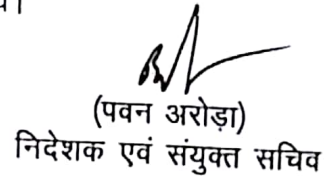 (पवन अरोड़ा)
निदेशक एवं संयुक्त सचिव